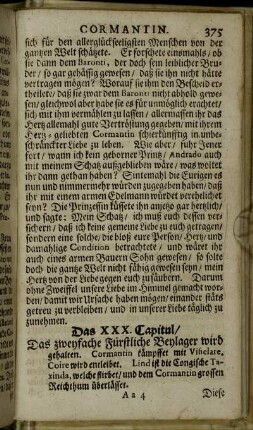 CORMANTIN. 375
sich für den allerglückseeligsten Menschen von der
gantzen Welt schätzete. Er forschete einsmahls / ob
sie dann dem Baronti, der doch sein leiblicher Bru-
der / so gar gehässig gewesen / daß sie ihn nicht hätte
vertragen mögen? Worauf sie ihm den Bescheid er-
theilet / daß sie zwar dem Baronti nicht abhold gewe-
sen / gleichwol aber habe sie es für unmöglich erachtet /
sich mit ihm vermählen zu lassen / allermassen ihr das
Hertz allemahl gute Vertröstung gegeben / mit ihrem
Hertz-geliebten Cormantin schierkünfftig in unbe-
schränckter Liebe zu leben. Wie aber / fuhr Jener
fort / wann ich kein geborner Printz / Andrado auch
mit meinem Schatz außgeblieben wäre / was woltet
ihr dann gethan haben? Sintemahl die Eurigen es
nun und nimmermehr würden zugegeben haben / daß
ihr mit einem armen Edelmann würdet verehlichet
seyn? Die Prinzessin küssete ihn anjetzo gar hertzlich /
und sagte: Mein Schatz / ich muß euch dessen ver-
sichern / daß ich keine gemeine Liebe zu euch getragen /
sondern eine solche / die bloß eure Person / Hertz / und
damahlige Condition betrachtet / und wäret ihr
auch eines armen Bauern Sohn gewesen / so solte
doch die gantze Welt nicht fähig gewesen seyn / mein
Hertz von der Liebe gegen euch zu säubern. Darum
ohne Zweiffel unsere Liebe im Himmel gemacht wor-
den / damit wir Ursache haben mögen / einander stäts
getreu zu verbleiben / und in unserer Liebe täglich zu
zunehmen.
Das XXX. Capitul /
Das zweyfache Fürstliche Beylager wird
gehalten. Cormantin kämpffet mit Vihelare.
Coire wird entleibet. Lind ist die Congische Ta-
xinda, welche stirbet / und dem Cormantin grossen
Reichthum überlässet.
Aa 4 Diese